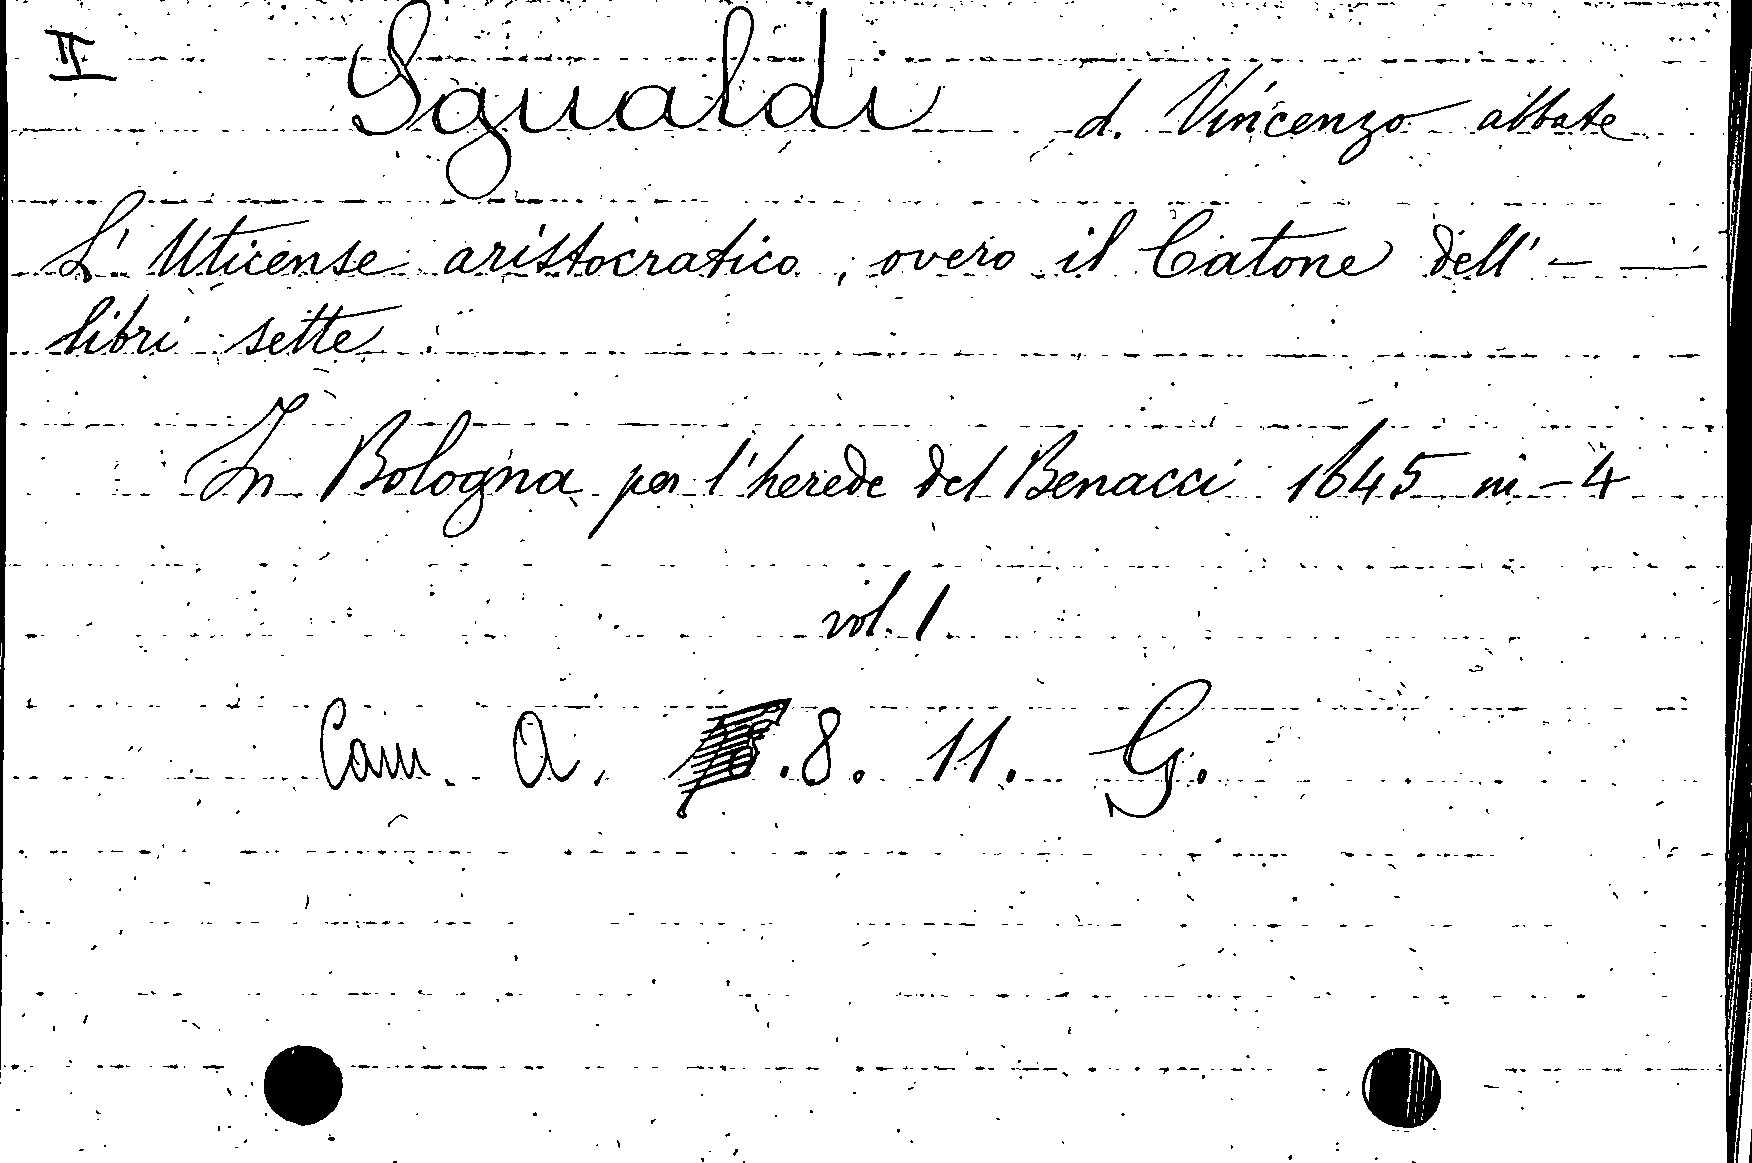 II Sgualdi d. Vincenzo abbate
L'Uticense aristocratico, overo il Catone dell' — —
libri sette
In Bologna per l'herede del Benacci 1645 in-4
vol. 1
Cam. A. .8. 11. G.